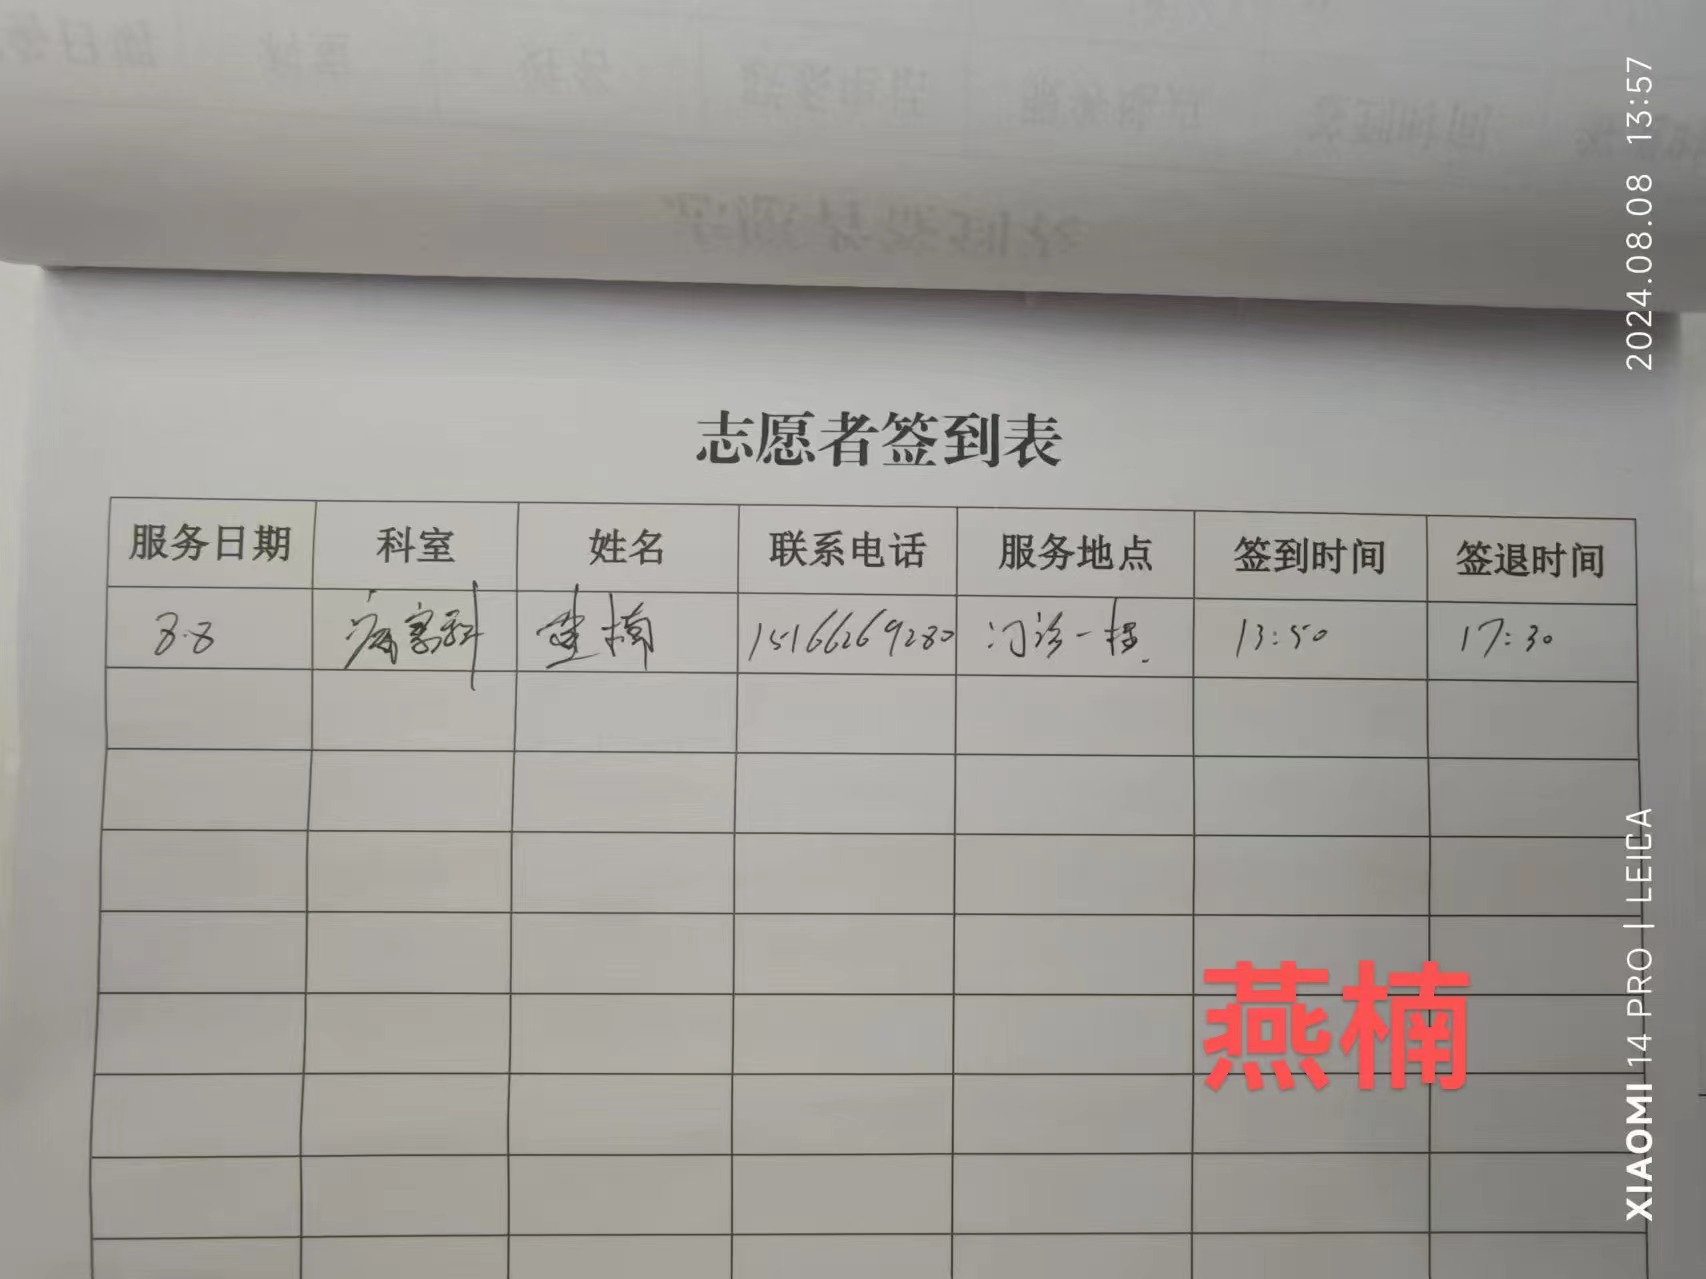 志愿者签到表
服务日期 科室 姓名 联系电话 服务地点 签到时间 签退时间
8.8 病案科 燕楠 15166269280 门诊一楼. 13:50 17:30
燕楠
2024.08.08 13:57
XIAOMI 14 PRO | LEICA